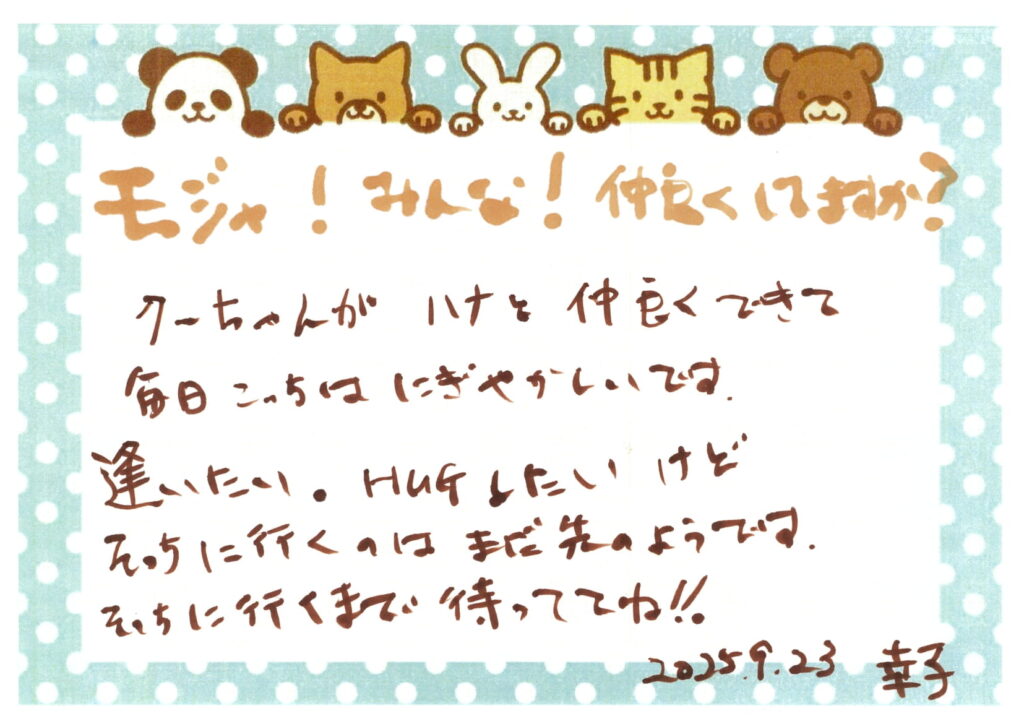 モジャ！みんな！仲良くしてますか？
クーちゃんが ハナと 仲良くできて
毎日 こっちは にぎやかしいです.
逢いたい。HUGしたいけど
そっちに行くのは まだ先のようです.
そっちに行くまで 待っててね!!
2025.9.23 幸子